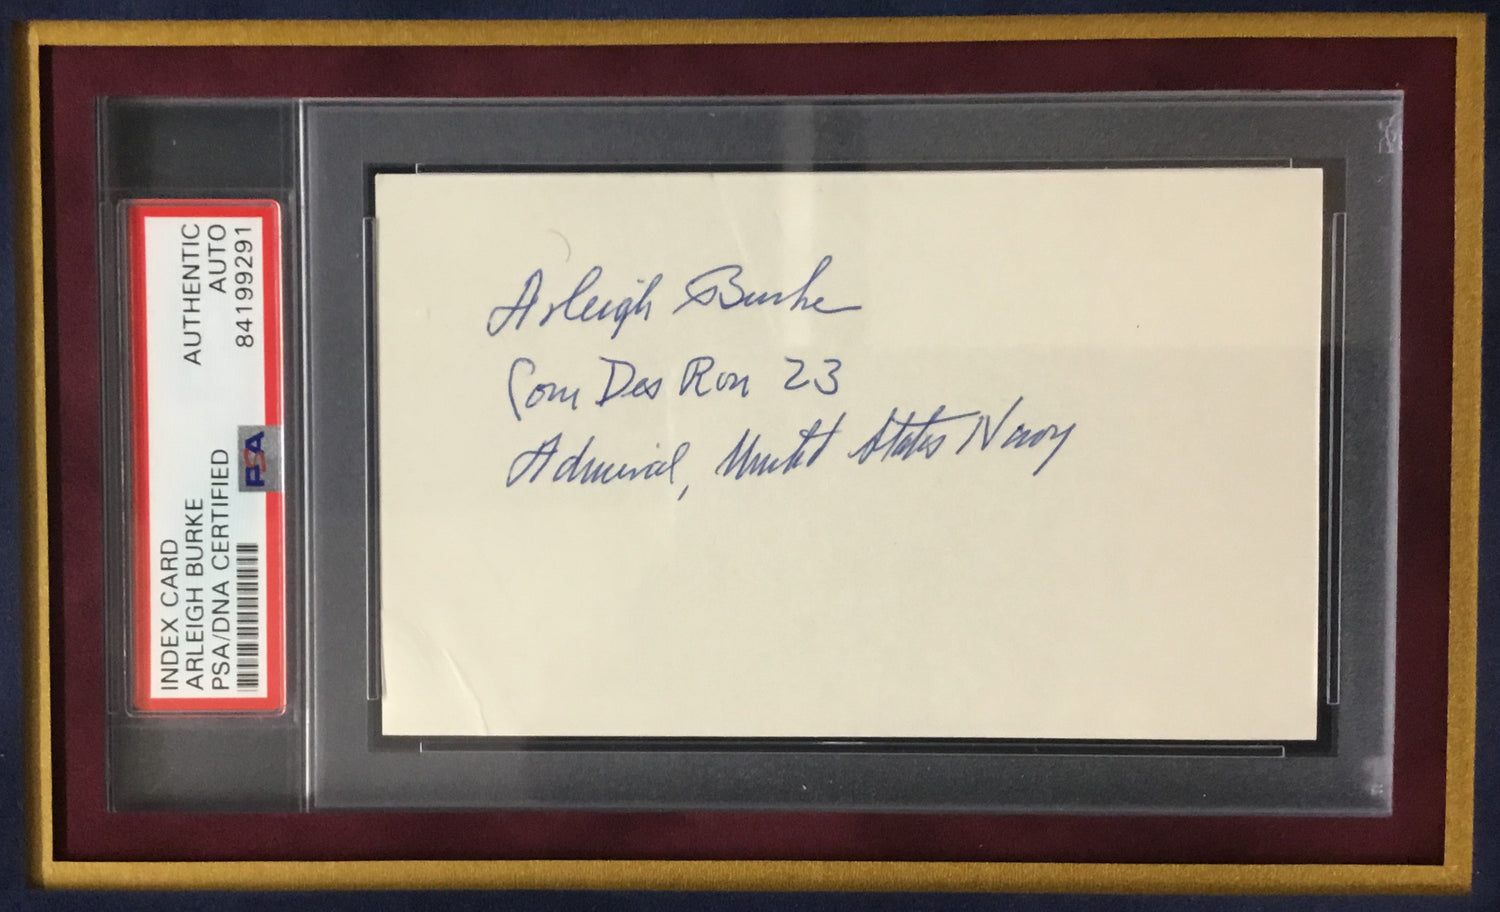 INDEX CARD AUTHENTIC
ARLEIGH BURKE AUTO
PSA/DNA CERTIFIED 84199291
PSA
Arleigh Burke
Com Des Ron 23
Admiral, United States Navy